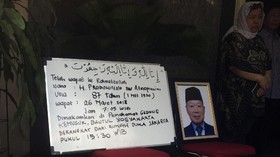 إنا لله وإنا إليه راجعون
Telah wapat ke Rahmatullah
Nama : H. Probosutedjo bin Atmoprawiro
Usia : 87 Tahun (1 Mei 1930)
Wapat : 26 Maret 2018
Jam 7:09 WIB
Dimakamkan di Pemakaman Gedong
Kemusuk, Bantul Yogyakarta
Berangkat dari Rumah Duka Jakarta
Pukul 13:30 WIB